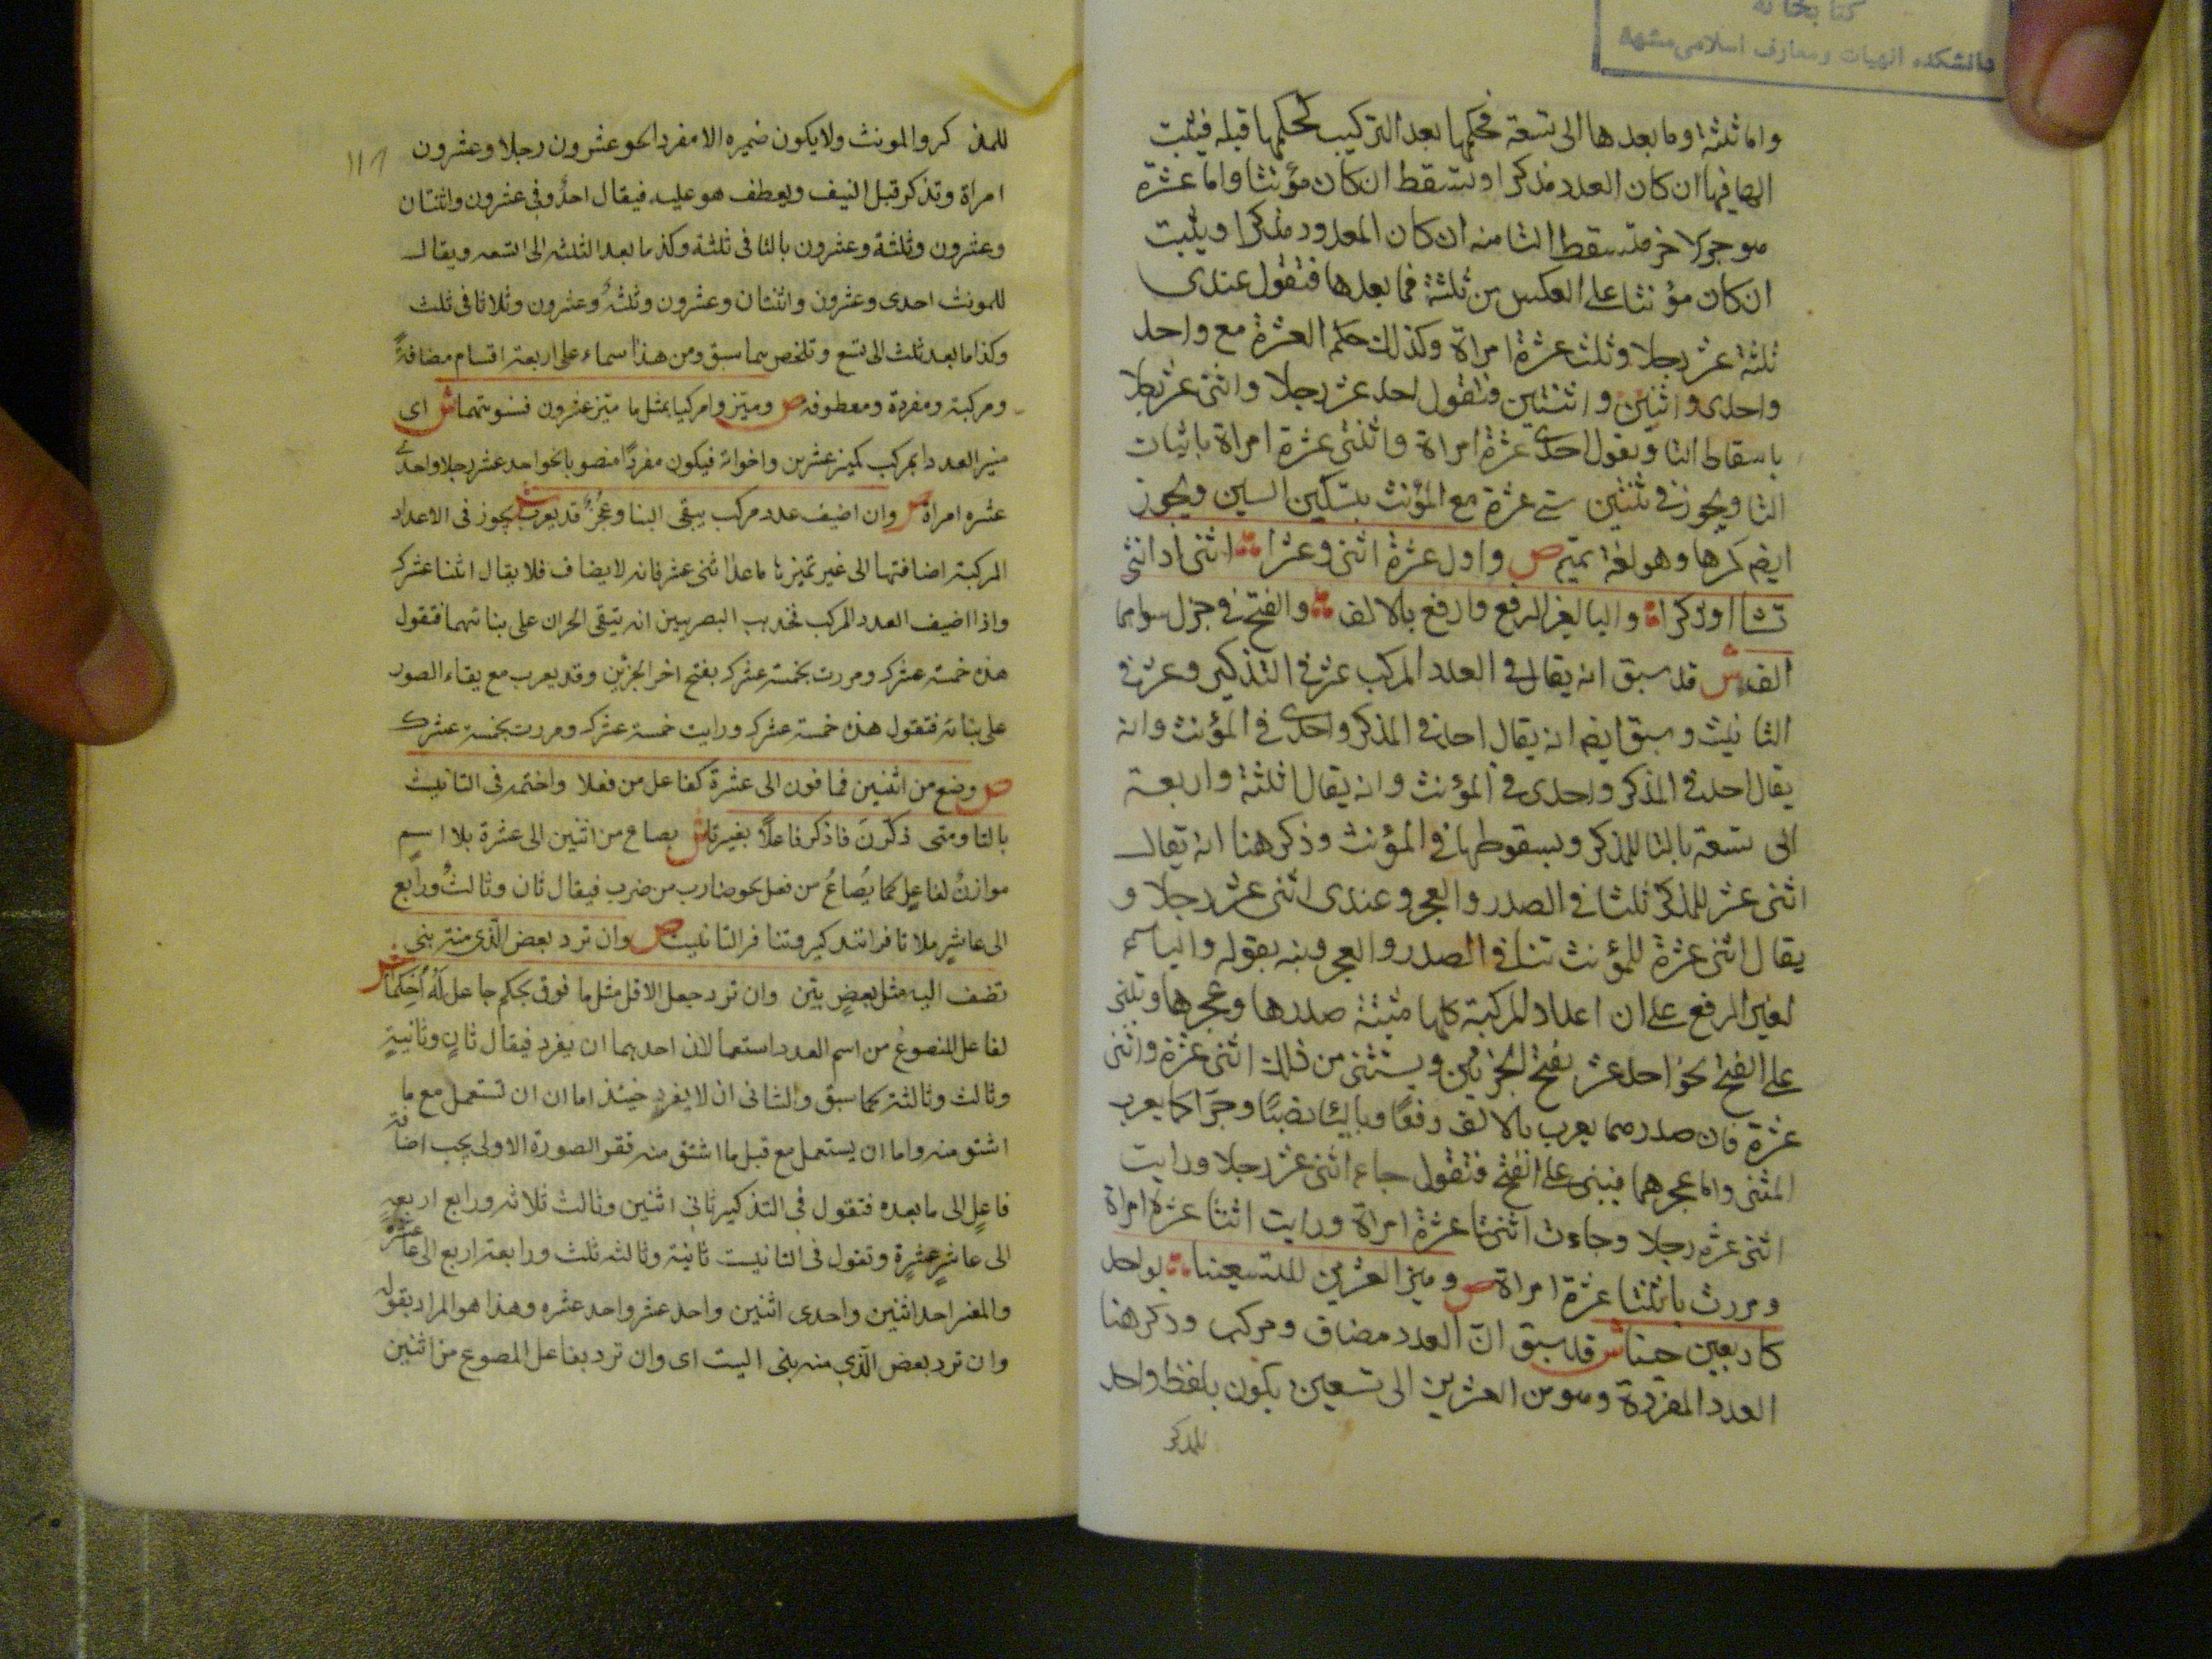 كتابخانه
دانشكده الهيات ومعارف اسلامى مشهد
واما ثلثة وما بعدها الى تسعة فحكمها بعد التركيب كحكمها قبله فيثبت
الها فيها ان كان العدد مذكرا ويسقط ان كان مؤنثا واما عشرة
موجز لاخر فتسقط التا منه ان كان المعدود مذكرا ويثبت
ان كان مؤنثا على العكس من ثلثة فما بعدها فتقول عندى
ثلثة عشر رجلا وثلث عشرة امراة وكذلك حكم العشرة مع واحد
واحدى واثنين واثنتين فتقول احد عشر رجلا واثنى عشر رجلا
باسقاط التا وتقول احدى عشرة امراة واثنتى عشرة امراة باثبات
التا ويجوز فى شين عشرة مع المؤنث بتسكين السين ويجوز
ايضا كسرها وهو لغة تميم ص واول عشرة اثنتى وعشرا اثنى اذا انثى
تشا او ذكرا واليا لغير الرفع وارفع بالالف والفتح فى جزئى سواهما
الف ش قد سبق انه يقال فى العدد المركب عشر فى التذكير وعشرة فى
التانيث وسبق ايضا انه يقال احد فى المذكر واحدى فى المؤنث وانه
يقال احد فى المذكر واحدى فى المؤنث وانه يقال ثلثة واربعة
الى تسعة بالتا للمذكر وبسقوطها فى المؤنث وذكر هنا انه يقال
اثنى عشر للمذكر ثلثا فى الصدر والعجز وعندى اثنى عشر رجلا و
يقال اثنتى عشرة للمؤنث بتا فى الصدر والعجز ونبه بقوله واليا
لغير الرفع على ان اعداد المركبة كلها مبنية صدرها وعجزها وتبنى
على الفتح نحو احد عشر بفتح الجزئين ويستثنى من ذلك اثنى عشرة واثنى
عشرة فان صدرهما يعرب بالالف رفعًا وباليا نصبًا وجرّا كما يعرب
المثنى واما عجزهما فيبنى على الفتح فتقول جاء اثنى عشر رجلا ورايت
اثنى عشر رجلا وجاءت اثنتا عشرة امراة ورايت اثنتا عشرة امراة
ومررت باثنتا عشرة امراة ص وميز العشرين للتسعينا بواحد
كاربعين حينا ش قد سبق ان العدد مضاف ومركب وذكر هنا
العدد المفردة وهو من العشرين الى تسعين يكون بلفظ واحد
للمذكر
للمذكر والمونث ولا يكون ضميره الا مفردا نحو عشرون رجلا وعشرون
امراة وتذكر قبل النيف ويعطف هو عليه فيقال احدٌ وفى عشرون واثنتان
وعشرون وثلثة وعشرون بالتا فى ثلثة وكذ ما بعد الثلثه الى التسعه ويقال
للمونث احدى وعشرون واثنتان وعشرون وثلثةٌ وعشرون وثلاثا فى ثلث
وكذا ما بعد ثلث الى تسع وتلخص مما سبق ومن هذا اسماء على اربعة اقسام مضافةً
ومركبة ومفردة ومعطوفه ص وميّزوا مركبا بمثل ما ميّز عشرون فسوينهما ش اى
ميز العدد المركب كميز عشرين واخواته فيكون مفردًا منصوبا نحو احد عشر رجلا واحدى
عشره امراة ص وان اضيف عدد مركب يبقى البنا وعجزٌ قد يعرب ش يجوز فى الاعداد
المركبة اضافتها الى غير تميزها ما عدا اثنى عشر فانه لا يضاف فلا يقال اثنا عشرك
واذا اضيف العدد المركب فمذهب البصريين انه يبقى الجزان على بنائهما فتقول
هذه خمسة عشرك ومررت بخمسة عشرك بفتح اخر الجزئين وقد يعرب مع بقاء الصدر
على بنائه فتقول هذه خمسة عشرك ورايت خمسة عشرك ومررت بخمسة عشرك
ص وضع من اثنين فما فوق الى عشرة كفاعل من فعلا واختمه فى التانيث
بالتا ومتى ذكّرتَ فاذكر فاعلًا بغير تا ش يصاع من اثنين الى عشرة بلا اسم
موازنٌ لفاعلٍ كما يُصاعُ من فعل نحو ضارب من ضرب فيقال ثان وثالثٌ ورابع
الى عاشرٍ بلا تا فى التذكير وبتا فى التانيث ص وان ترد بعض الّذى منه بنى
تضف اليه مثل بعضٍ بيّن وان ترد جعل الاقل مثل ما فوق بحكم جاعل لَهُ احكما ش
لفاعل المصوغ من اسم العدد استعمالان احديهما ان يفرد فيقال ثانٍ وثانيةٍ
وثالث وثالثة كما سبق والثانى ان لا يفرد حينئذ اما ان ان تستعمل مع ما
اشتق منه واما ان يستعمل مع قبل ما اشتق منه فقى الصورة الاولى يجب اضافة
فاعلٍ الى ما بعده فتقول فى التذكير ثانى اثنين وثالث ثلاثه ورابع اربعةٍ
الى عاشرٍ عشرةٍ وتقول فى التانيث ثانية وثالثه ثلث ورابعة اربع الى عاشرة عشرٍ
والمعنى احد اثنين واحدى اثنين واحد عشر واحد عشره وهذا هو المراد بقوله
وان ترد بعض الّذي منه بنى البيت اى وان ترد بفاعل المصوع من اثنين